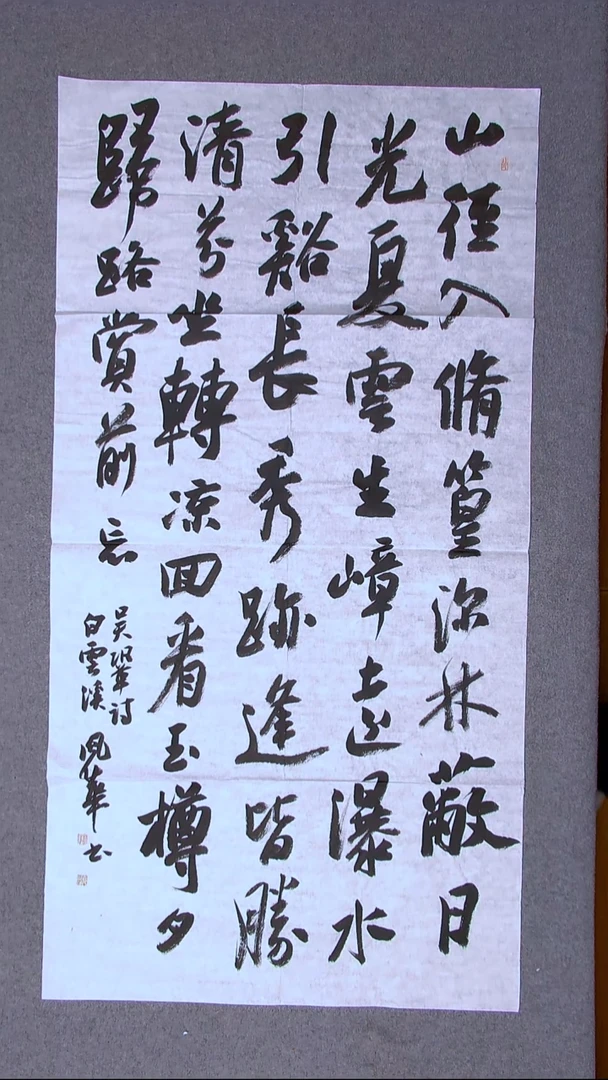 山徑入脩篁深林蔽日
光夏雲生嶂遠瀑水
引谿長秀跡逢皆勝
清芬坐轉凉回看玉樽夕
歸路賞前忘
吳鞏詩
白雲溪 華书